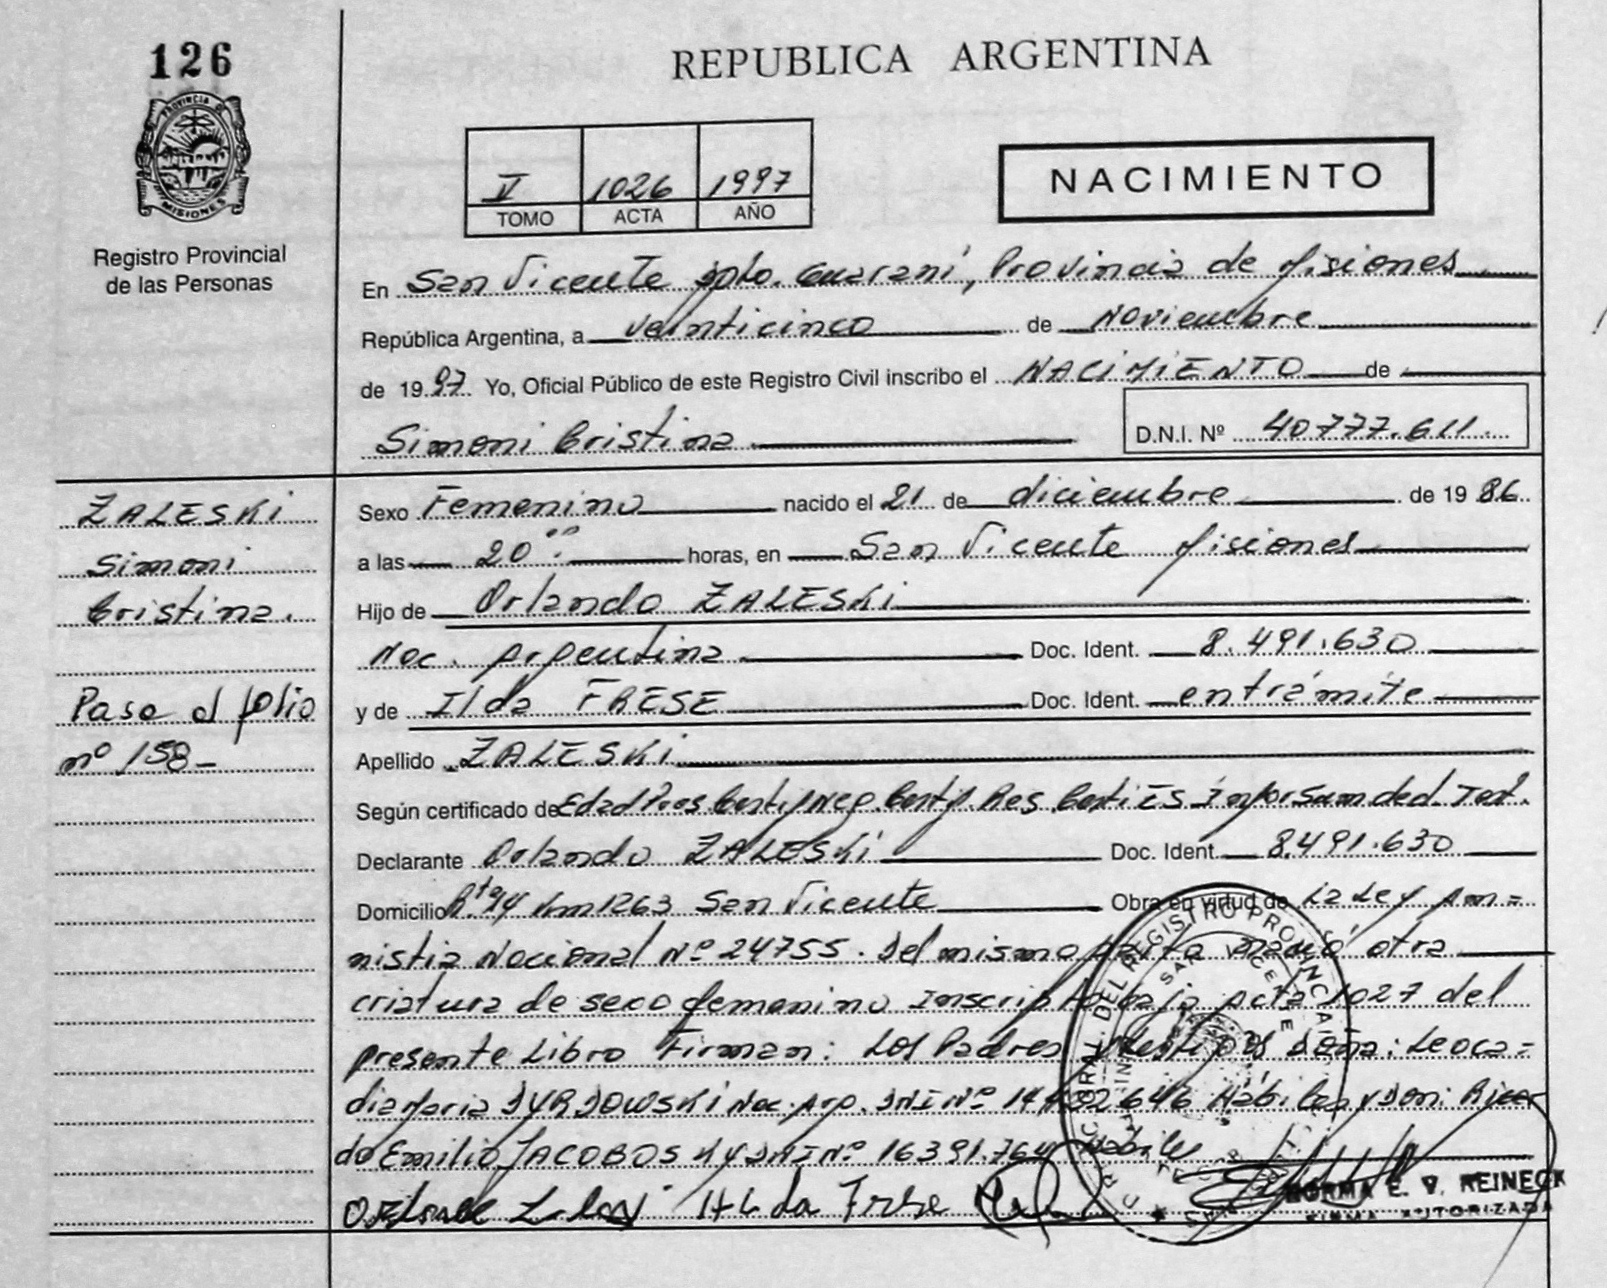 126
PROVINCIA DE
MISIONES
Registro Provincial
de las Personas
REPUBLICA ARGENTINA
V 1026 1997
TOMO ACTA AÑO
NACIMIENTO
En San Vicente Dpto. Guaraní, Provincia de Misiones
República Argentina, a veinticinco de Noviembre
de 1997 Yo, Oficial Público de este Registro Civil inscribo el NACIMIENTO de
Simoni Cristina D.N.I. Nº 40777.611
ZALESKI
Simoni
Cristina.
Pase al folio
nº 158-
Sexo Femenino nacido el 21 de diciembre de 1986
a las 20 horas, en San Vicente Misiones
Hijo de Orlando ZALESKI
Nac. Argentina Doc. Ident. 8.491.630
y de Ilda FRESE Doc. Ident. entrámite
Apellido ZALESKI
Según certificado de Edad Neg. Res.
Declarante Orlando ZALESKI Doc. Ident. 8.491.630
Domicilio Rta 14 km1263 San Vicente Obra en virtud de La Ley Am=
nistia Nacional Nº 24755. Del mismo parto nació otra
criatura de sexo femenino Inscripta bajo Acta 1027 del
presente Libro Firman: Los Padres y testigos Doña: Leoca=
dia Maria DYRDOWSKI Nac. Arg. DNI Nº Hábil y Don: Ricar
do Emilio JACOBOSKY DNI Nº 16391.764 Habiles
Ilda Frese
NORMA E. V. REINECK
FIRMA AUTORIZADA
DEL REGISTRO PROVINCIAL
SAN VICENTE